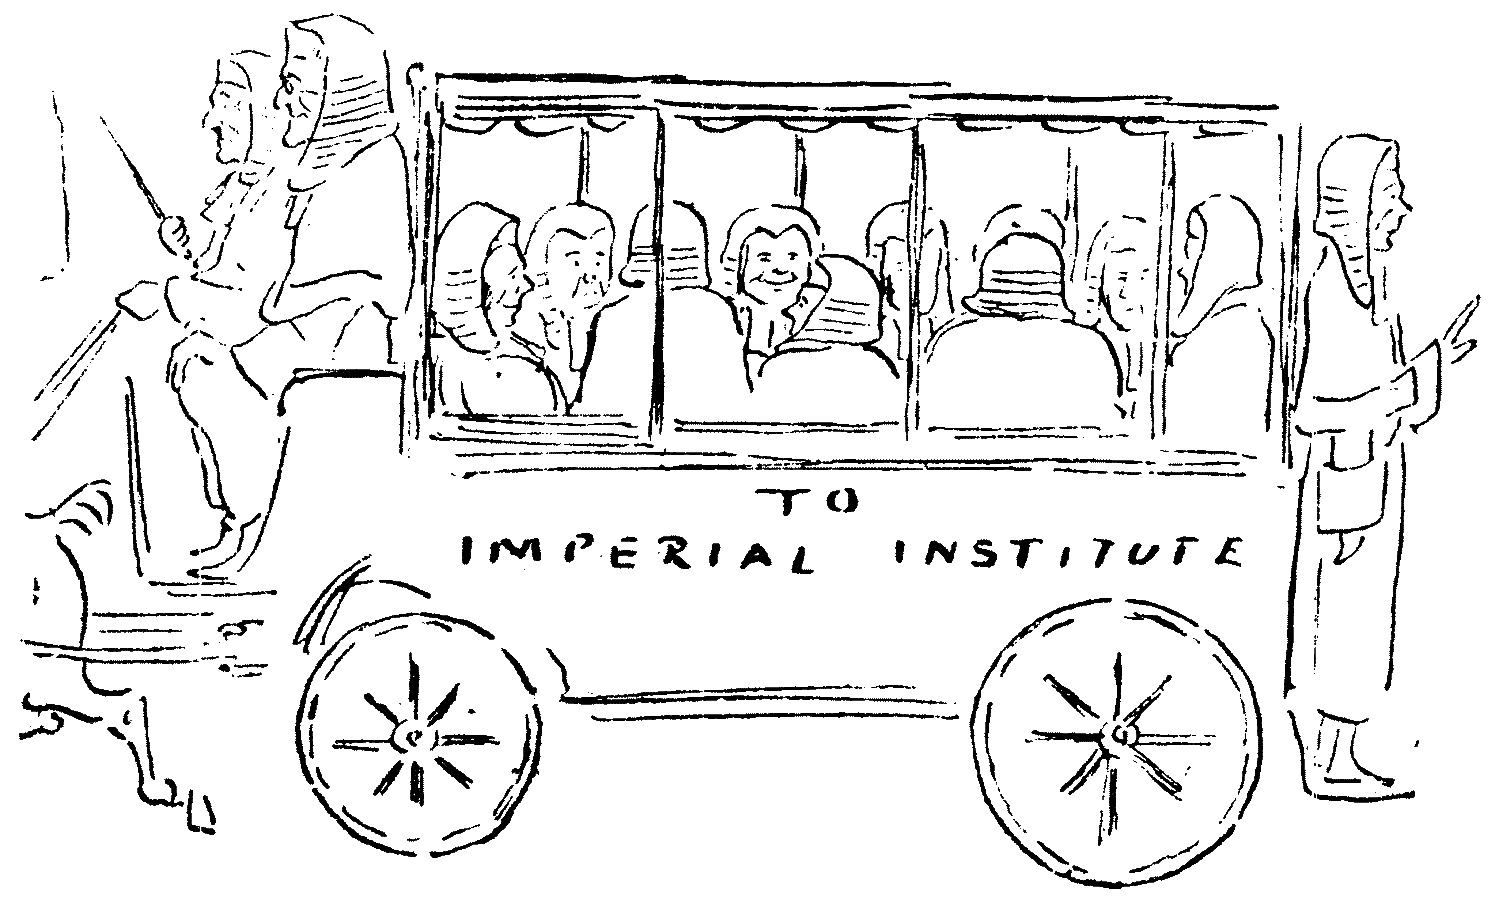 TO
IMPERIAL INSTITUTE